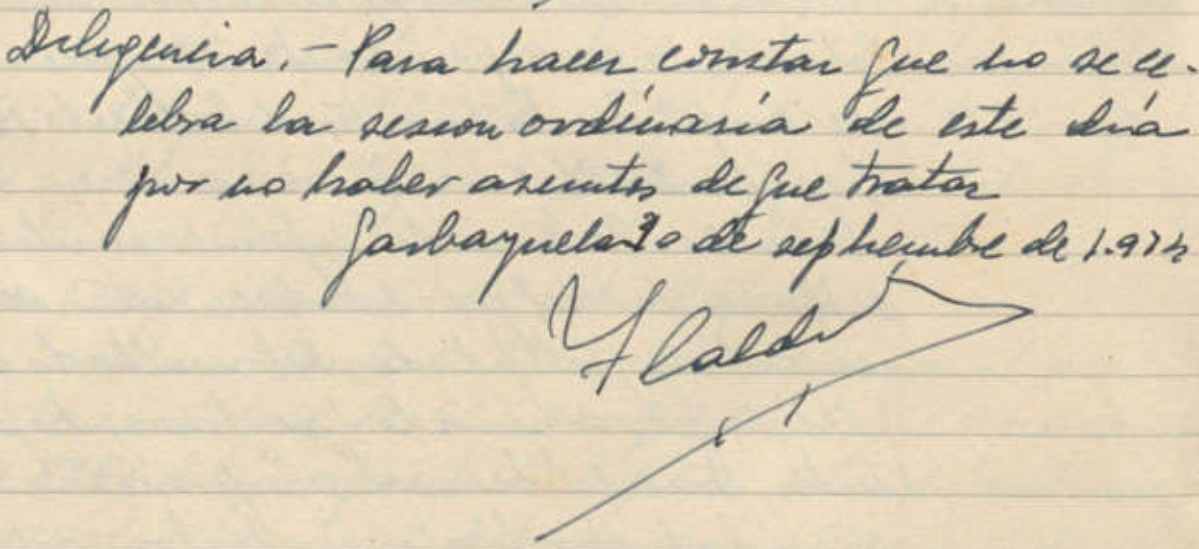 Diligencia.- Para hacer constar que no se ce-
lebra la sesion ordinaria de este día
por no haber asuntos de que tratar
Garbayuela 30 de septiembre de 1.974